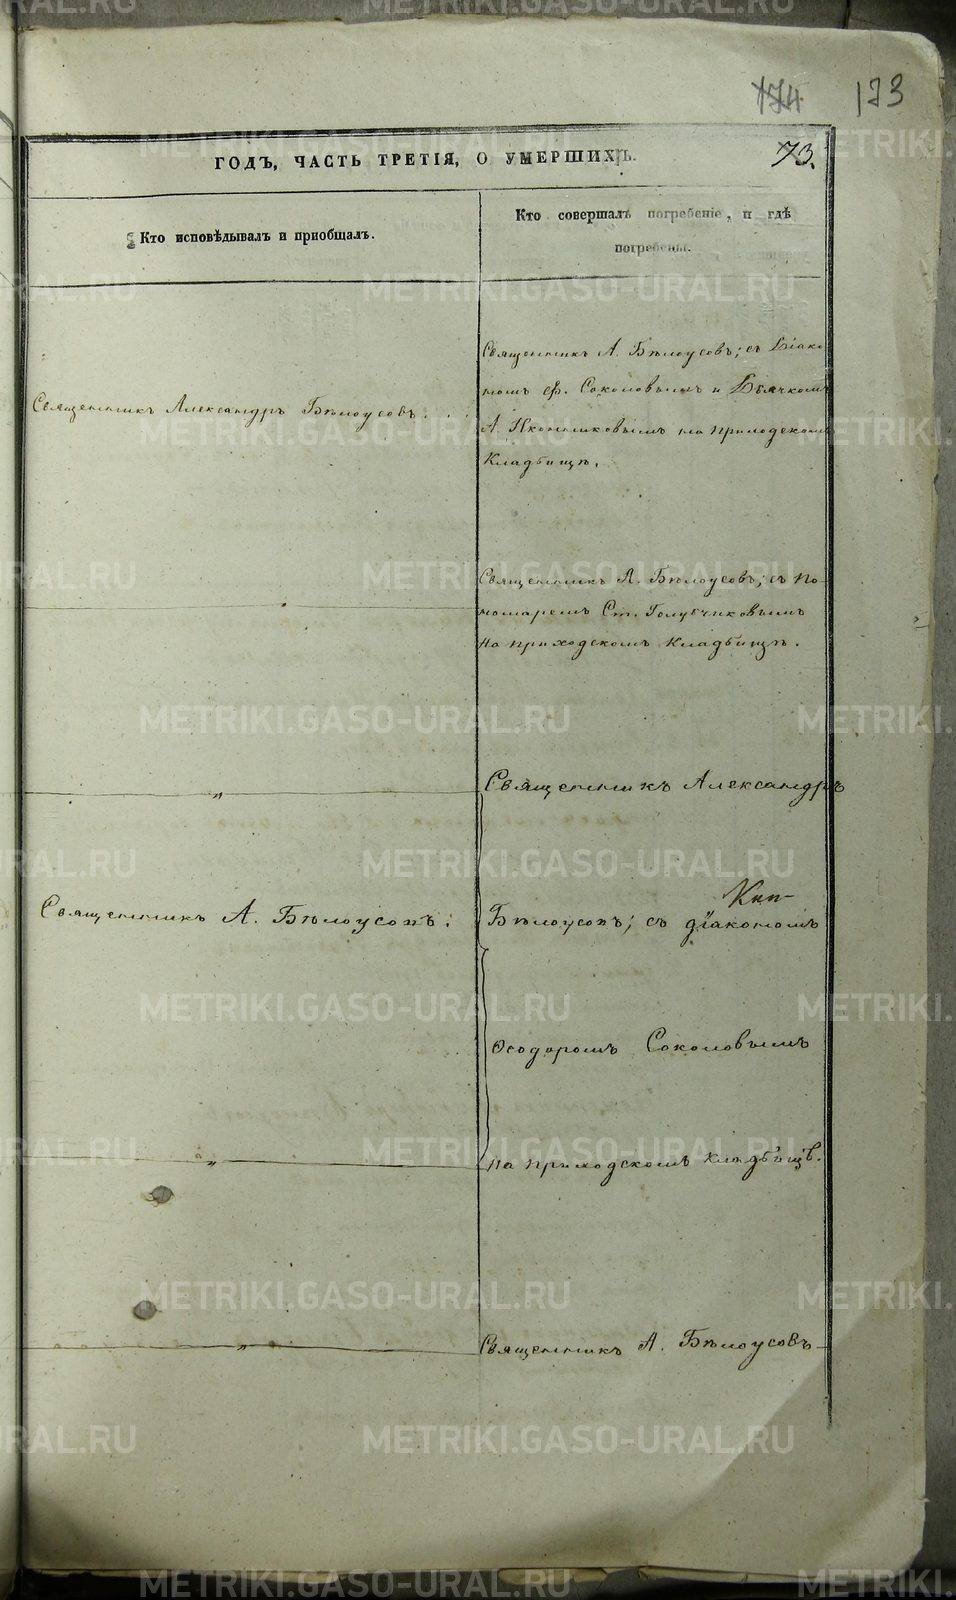 174 173
ГОДЪ, ЧАСТЬ ТРЕТІЯ, О УМЕРШИХЪ.
73.
Кто исповѣдывалъ и пріобщалъ.
Кто совершалъ погребеніе, и гдѣ
погребены.
Священникъ А. Бѣлоусовъ; съ Діако-
номъ Ѳ. Соколовымъ и Дьячкомъ
Священникъ Александръ Бѣлоусовъ.
А. Иконниковымъ на приходскомъ
Кладбищѣ.
Священникъ А. Бѣлоусовъ; съ По-
номаремъ Ст. Голубчиковымъ
на приходскомъ Кладбищѣ.
Священникъ Александръ
„
Священникъ А. Бѣлоусовъ.
Бѣлоусовъ; съ діакономъ
Ѳеодоромъ Соколовымъ
„
на приходскомъ кладбищѣ.
„
Священникъ А. Бѣлоусовъ
METRIKI.GASO-URAL.RU